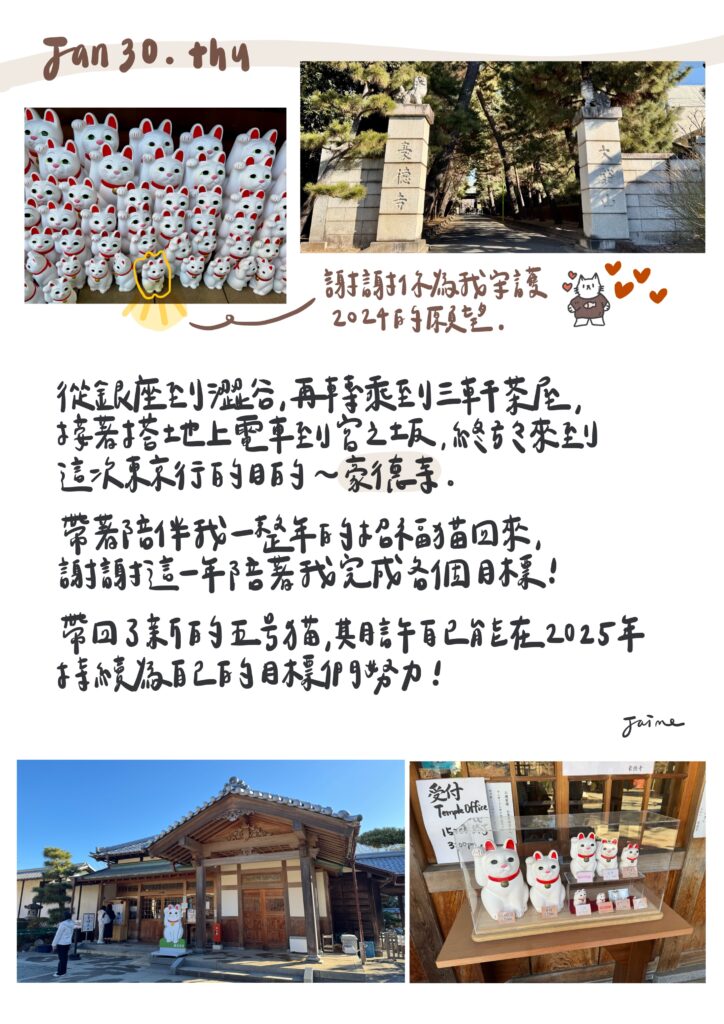 Jan 30. thu
豪徳寺
謝謝你為我守護
2024的願望.
從銀座到澀谷,再轉乘到三軒茶屋,
接著搭地上電車到宮之坂,終於來到
這次東京行的目的～豪德寺.
帶著陪伴我一整年的招福貓回來,
謝謝這一年陪著我完成各個目標!
帶回了新的五号猫,期許自己能在2025年
持續為自己的目標們努力!
Jaime
受付
Temple Office